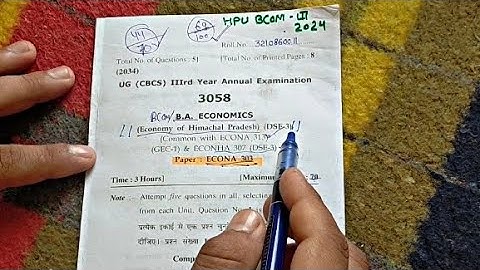 44
70
69
100
HPU BCOM - III
2024
Roll No. 3210860011
Total No. of Questions : 5]
[Total No. of Printed Pages : 8
(2034)
UG (CBCS) IIIrd Year Annual Examination
3058
BCom/ B.A. ECONOMICS
(Economy of Himachal Pradesh) (DSE-3)
(Common with ECONA 317
(GEC-1) & ECONHA 307 (DSE-3)
Paper : ECONA 303
Time : 3 Hours]
[Maximum 70
Note :- Attempt five questions in all, selecting
from each Unit. Question No.
प्रत्येक इकाई में एक प्रश्न
दीजिए। प्रश्न संख्या
Comp